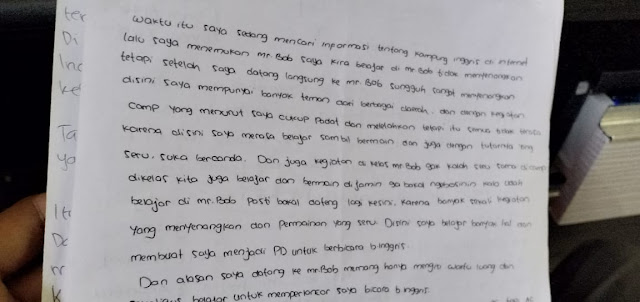 ter
Di
Inc
ke
Ta
ya
Ite
Da
K
waktu itu saya sedang mencari informasi tentang kampung inggris di internet
lalu saya menemukan mr.Bob saya kira belajar di mr.Bob tidak menyenangkan
tetapi setelah saya datang langsung ke mr.Bob sungguh sangat menyenangkan
disini saya mempunyai banyak teman dari berbagai daerah, dan dengan kegiatan
camp yang menurut saya cukup padat dan melelahkan tetapi itu semua tidak
karena disini saya merasa belajar sambil bermain dan juga dengan tutornya yang
seru, suka bercanda. Dan juga kegiatan di kelas mr.Bob gak kalah seru sama di camp
dikelas kita juga belajar dan bermain dijamin ga bakal ngebosenin
belajar di mr.Bob pasti bakal dateng lagi kesini, karena banyak sekali kegiatan
yang menyenangkan dan permainan yang seru. Disini saya belajar banyak hal dan
membuat saya menjadi PD untuk berbicara b.inggris.
Dan alasan saya datang ke mr.Bob memang hanya mengisi waktu luang dan
belajar untuk memperlancar saya bicara b.inggris.